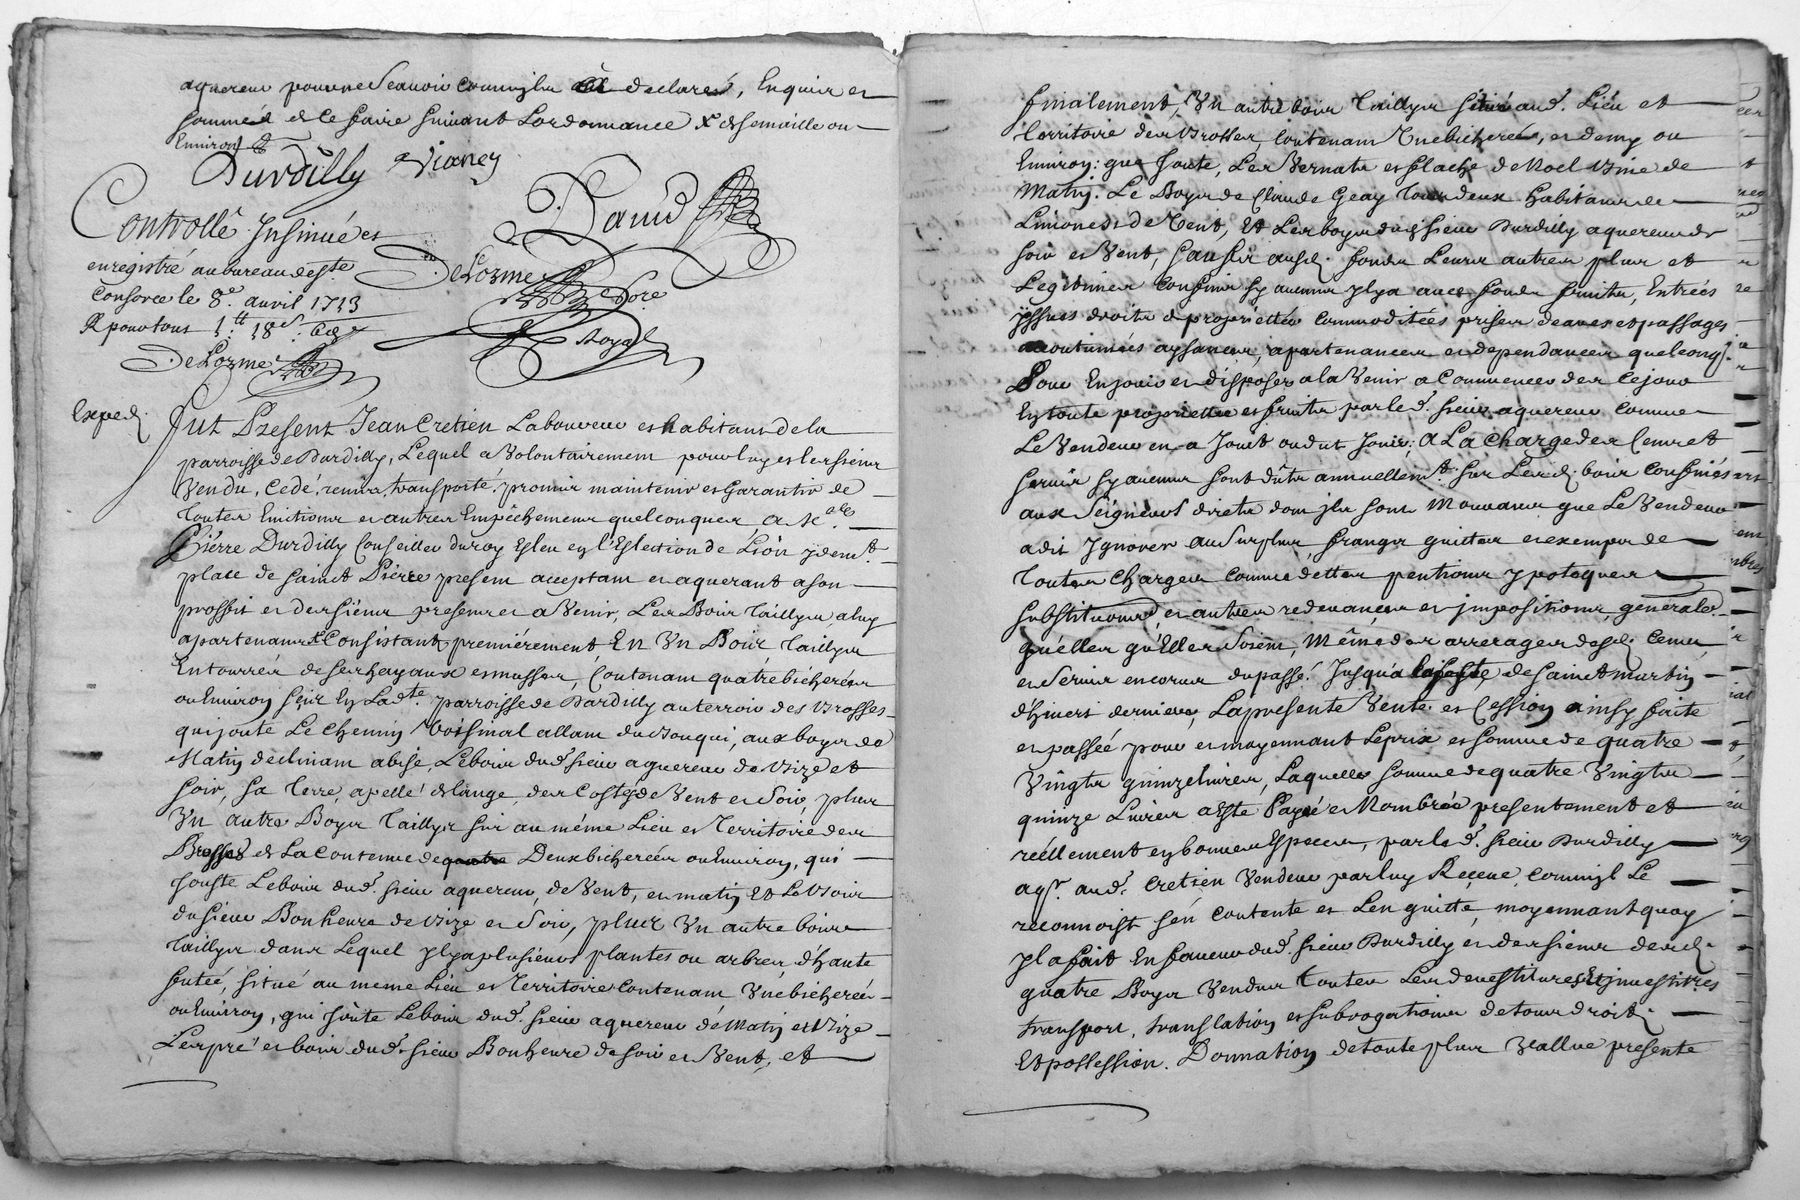 aquereur pour ne sçavoir comm'il a declaré, Enquis et
sommé de ce faire suivant Lordonnance X de semaille ou
Environ
Durdilly Vianey
David
Controllé Insinué et
enregistré au bureau de Ste
Consorce le 8e. avril 1713
R pour tous 1lt 18s. 6d
DeLorme
DeLorme
Nore
Royal
Exped.
Fut Present Jean Cretien Laboureur et habitant de la
parroisse de Dardilly, Lequel a Volontairement pour luy et les siens
Vendu, Cedé, remis, transporté, promis maintenir et Garantir de
toutes Evictions et autres Empêchemens quelconques A
Pierre Durdilly Conseiller du roy Esleu en l'Eslection de Lion y demt.
place de sainct Pierre present acceptant et aquerant a son
proffit et des siens presens et a Venir, Les Bois Taillys a luy
apartenans X Consistant, premiérement En Un Bois Taillys
Entourrés de ses hayaux et , Contenant quatre bicherées
ou Environ sciz En Ladte. parroisse de Dardilly au terroir des Brosses
qui joute Le chemin Voisinal allant du Bouqui, aux boys de
Matin declinant a bise, Le bois dud. sieur aquereur de Bize et
soir, sa Terre apellé delange des Costés de Vent et Soir, plus
Un autre Boys Taillys sis au même Lieu et Territoire des
Brosses de La Contenue de quatre Deux bicherées ou Environ, qui
jouste Le bois dud. sieur aquereur de Vent, et matin Et Le Bois
du sieur Bonheure de Bize et Soir, plus Un autre bois
Taillys dans Lequel yl y a plusieurs plantes ou arbres d'haute
futée, situé au même Lieu et Territoire contenant Une bicherée
ou Environ, qui joute Le bois dud. sieur aquereur de Matin et Bize
Les pré et bois dud. sieur Bonheure de soir et Vent, et
finalement, Un autre bois Taillys situé aud. Lieu et
territoire des Brosses, contenant Une bicherée, et demy ou
Environ: que joute, Les Vernats et plache de Noel Vine de
Matin. Le Boys de Claude Geay tous deux habitans de
Limonest de Vent, Et Les boys dud. sieur Durdilly aquereur de
soir et Vent, sauf les ausd. fonds Leurs autres plus et
Legitimes Confins sy aucuns yl y a avec fonds fruits, Entrées
yssues droits de proprietté commoditées prises deaues et passages
accoutumées aysances, apartenances et dependances quelconqs.
Pour En jouir et disposer a la Venir a Commencer des Cejourd
En toute proprietté et fruits par led. sieur aquereur comme
Le Vendeur en a Jouit ou dut Jouir; A La Charge des Cens et
servis sy aucuns sont dûts annuellemt. sur Lesd. bois Confinés
aux Seigneurs directs dont jls sont Mouvans que Le Vendeur
a dit Ignorer au Surplus francs quittes et exempts de
toutes Charges comme dettes pentions ypoteques
substitutions, et autres redevances et impositions generales
quélles qu'Elles Soient, Même des arrerages desd. Cens
et Servis encourus du passé. Jusqu'a la feste de Sainct martin
d'hivert dernier, La presente Vente et Cession ainsy faite
et passée pour et moyennant Le prix et somme de quatre
Vingts quinze livres, Laquelle somme de quatre Vingts
quinze Livres a esté Payé et Nombrée presentement et
réellement en bonnes Especes, par led. sieur Durdilly
aqr. aud. Cretien Vendeur par luy Reçeue, comm'jl Le
reconnoist s'en contente et L'en quitte, moyennant quoy
yl a fait En faveur dud. sieur Durdilly et des siens desd.
quatre Boys Vendus toutes Les devestitures Et jnvestitres
transport, translation et subrogations de tous droits
Et possession. Donnation de toute plus Vallue presente